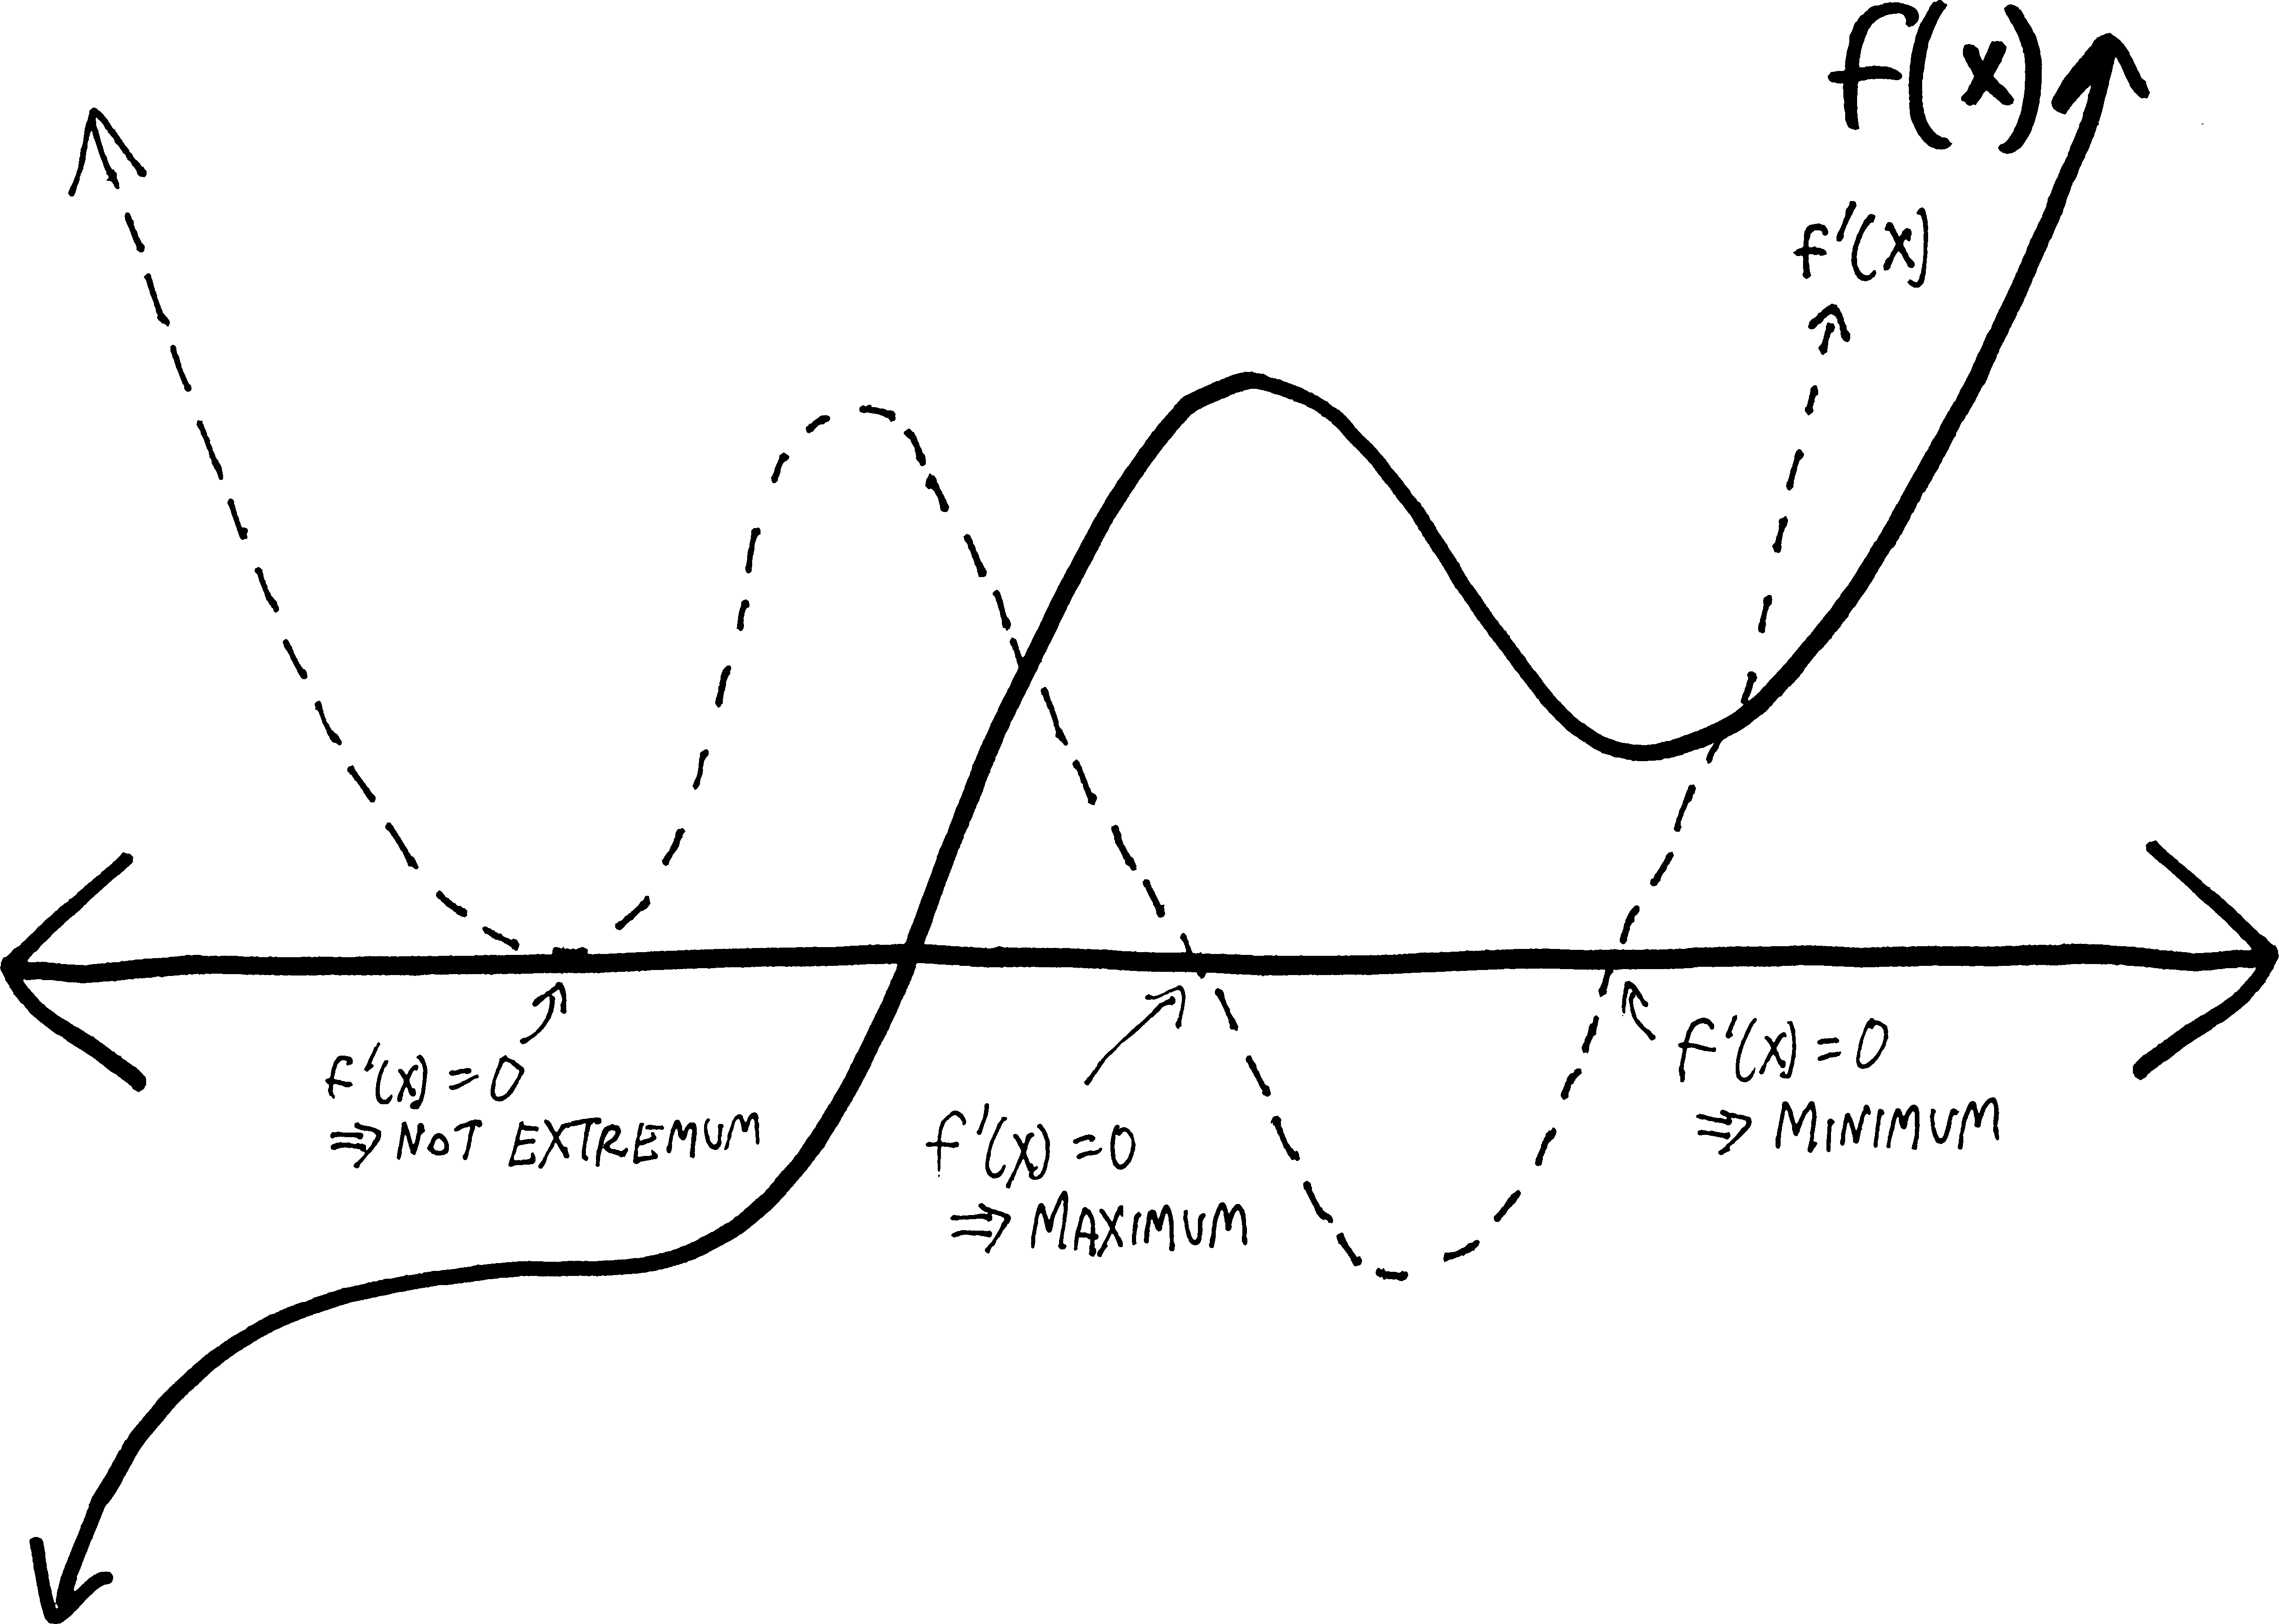 f(x)
f'(x)
f'(x)=0
⇒ NOT EXTREMUM
f'(x)=0
⇒ MAXIMUM
f'(x)=0
⇒ MINIMUM